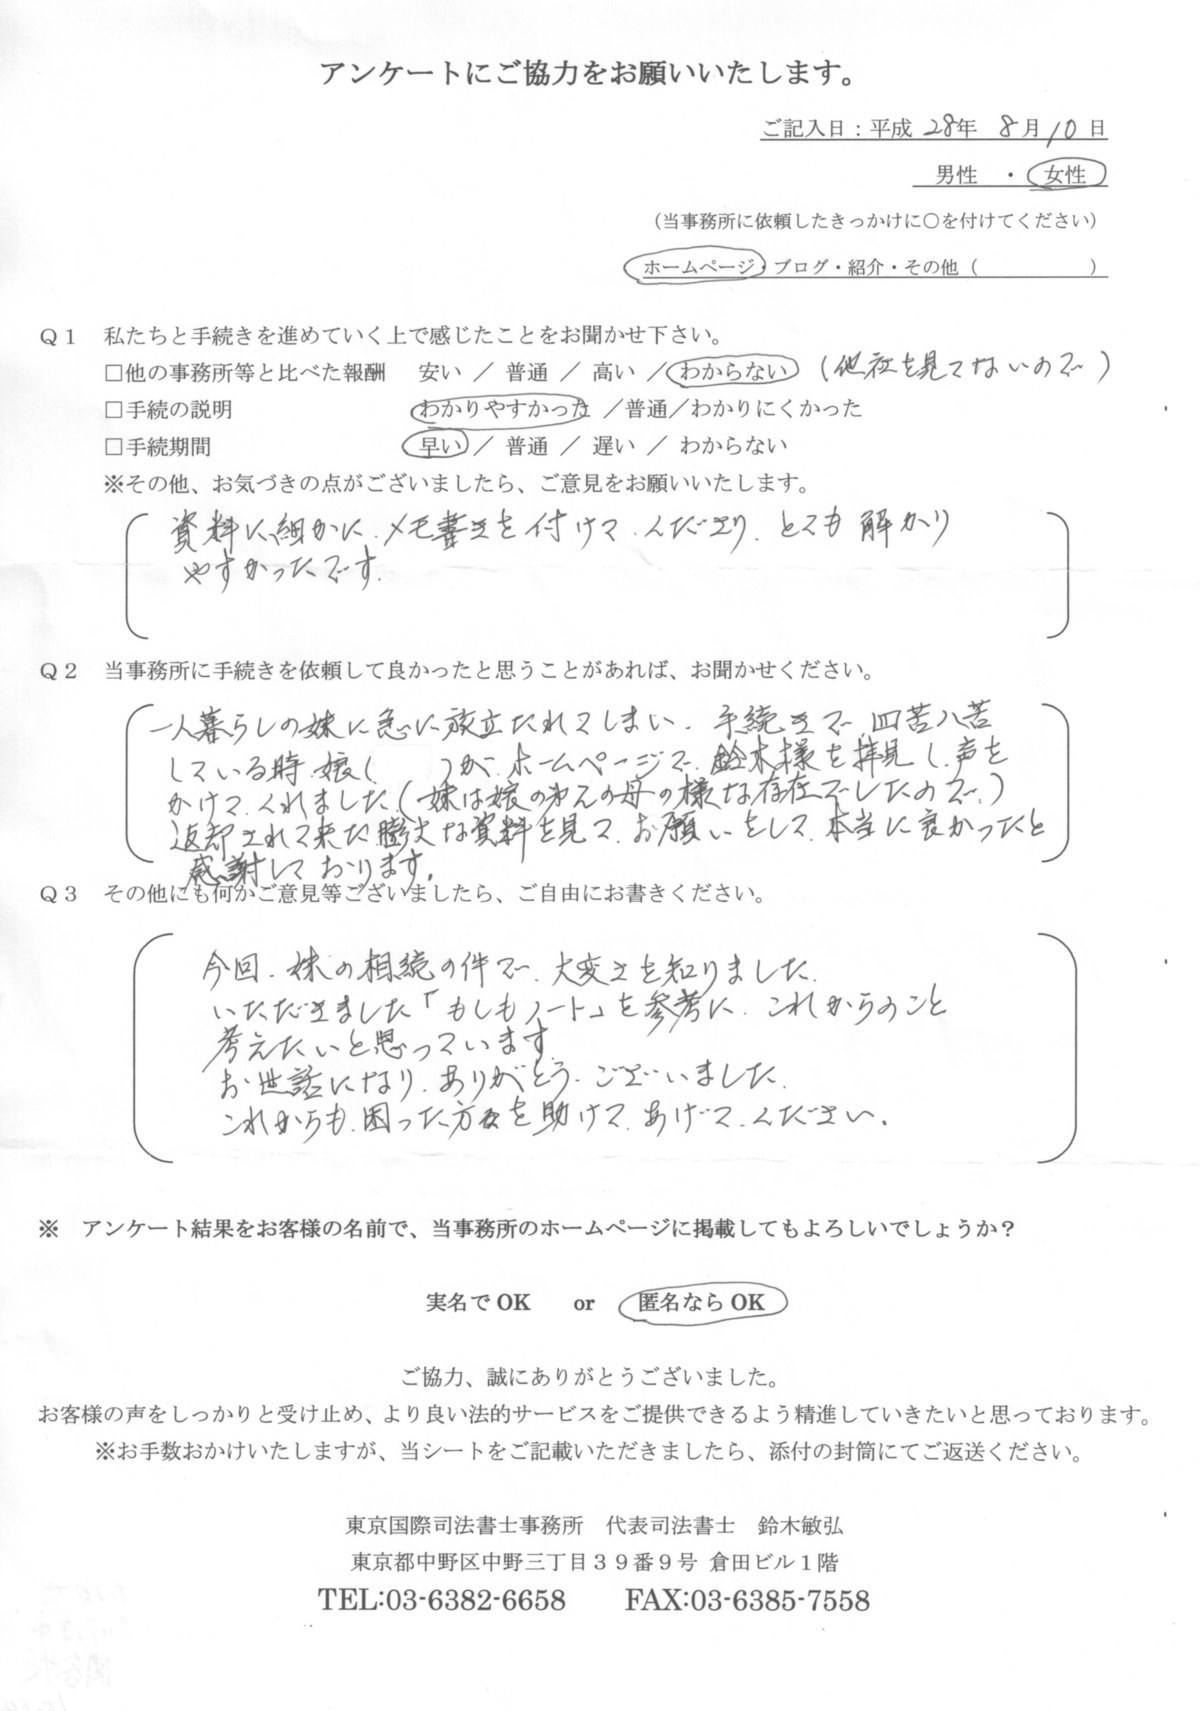 アンケートにご協力をお願いいたします。
ご記入日：平成 28年 8月10日
男性 ・ 女性
（当事務所に依頼したきっかけに○を付けてください）
ホームページ・ブログ・紹介・その他（　　　　　）
Ｑ１　私たちと手続きを進めていく上で感じたことをお聞かせ下さい。
□他の事務所等と比べた報酬　安い ／ 普通 ／ 高い ／わからない （他社を見てないので）
□手続の説明　わかりやすかった ／普通／わかりにくかった
□手続期間　早い ／ 普通 ／ 遅い ／ わからない
※その他、お気づきの点がございましたら、ご意見をお願いいたします。
資料に細かに、メモ書きを付けて、くださり、とても解かり
やすかったです。
Ｑ２　当事務所に手続きを依頼して良かったと思うことがあれば、お聞かせください。
一人暮らしの妹に急に旅立たれてしまい、手続きで、四苦八苦
している時、娘（　　）が、ホームページで、鈴木様を拝見し、声を
かけて、くれました（妹は娘の第2の母の様な存在でしたので、）
返却されて来た膨大な資料を見て、お願いをして、本当に良かったと
感謝しております。
Ｑ３　その他にも何かご意見等ございましたら、ご自由にお書きください。
今回、妹の相続の件で、大変さを知りました。
いただきました「もしもノート」を参考に、これからのこと
考えたいと思っています。
お世話になり、ありがとう、ございました、
これからも、困った方々を助けて、あげて、ください。
※　アンケート結果をお客様の名前で、当事務所のホームページに掲載してもよろしいでしょうか？
実名でOK　or　匿名ならOK
ご協力、誠にありがとうございました。
お客様の声をしっかりと受け止め、より良い法的サービスをご提供できるよう精進していきたいと思っております。
※お手数おかけいたしますが、当シートをご記載いただきましたら、添付の封筒にてご返送ください。
東京国際司法書士事務所　代表司法書士　鈴木敏弘
東京都中野区中野三丁目３９番９号 倉田ビル１階
TEL:03-6382-6658　FAX:03-6385-7558